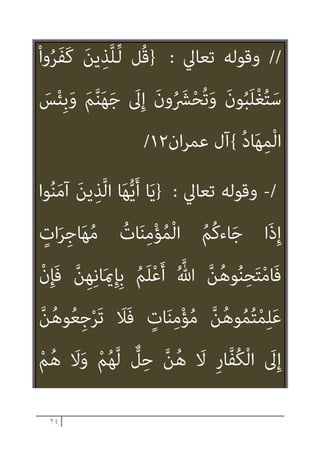 // وقوله تعالي : {قُل لِّلَّذِينَ كَفَرُواْ
سَتُغْلَبُونَ وَتُحْشَرُونَ إِلَى جَهَنَّمَ وَبِئْسَ
الْمِهَادُ} آل عمران١٢/
/- وقوله تعالي : {يَا أَيُّهَا الَّذِينَ آمَنُوا
إِذَا جَاءكُمُ الْمُؤْمِنَاتُ مُهَاجِرَاتٍ
فَامْتَحِنُوهُنَّ اللَّهُ أَعْلَمُ بِإِيمَانِهِنَّ فَإِنْ
عَلِمْتُمُوهُنَّ مُؤْمِنَاتٍ فَلَا تَرْجِعُوهُنَّ
إِلَى الْكُفَّارِ لَا هُنَّ حِلٌّ لَّهُمْ وَلَا هُمْ
٢٤